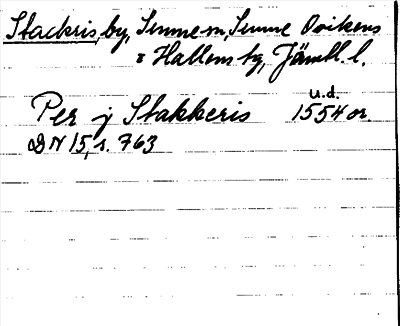 Stackris, by, Sunne sn, Sunne Ovikens
o Hallens tg, Jämtl. l.
u.d.
Per j Stakkeris 1554 or.
DN 15, s. 763